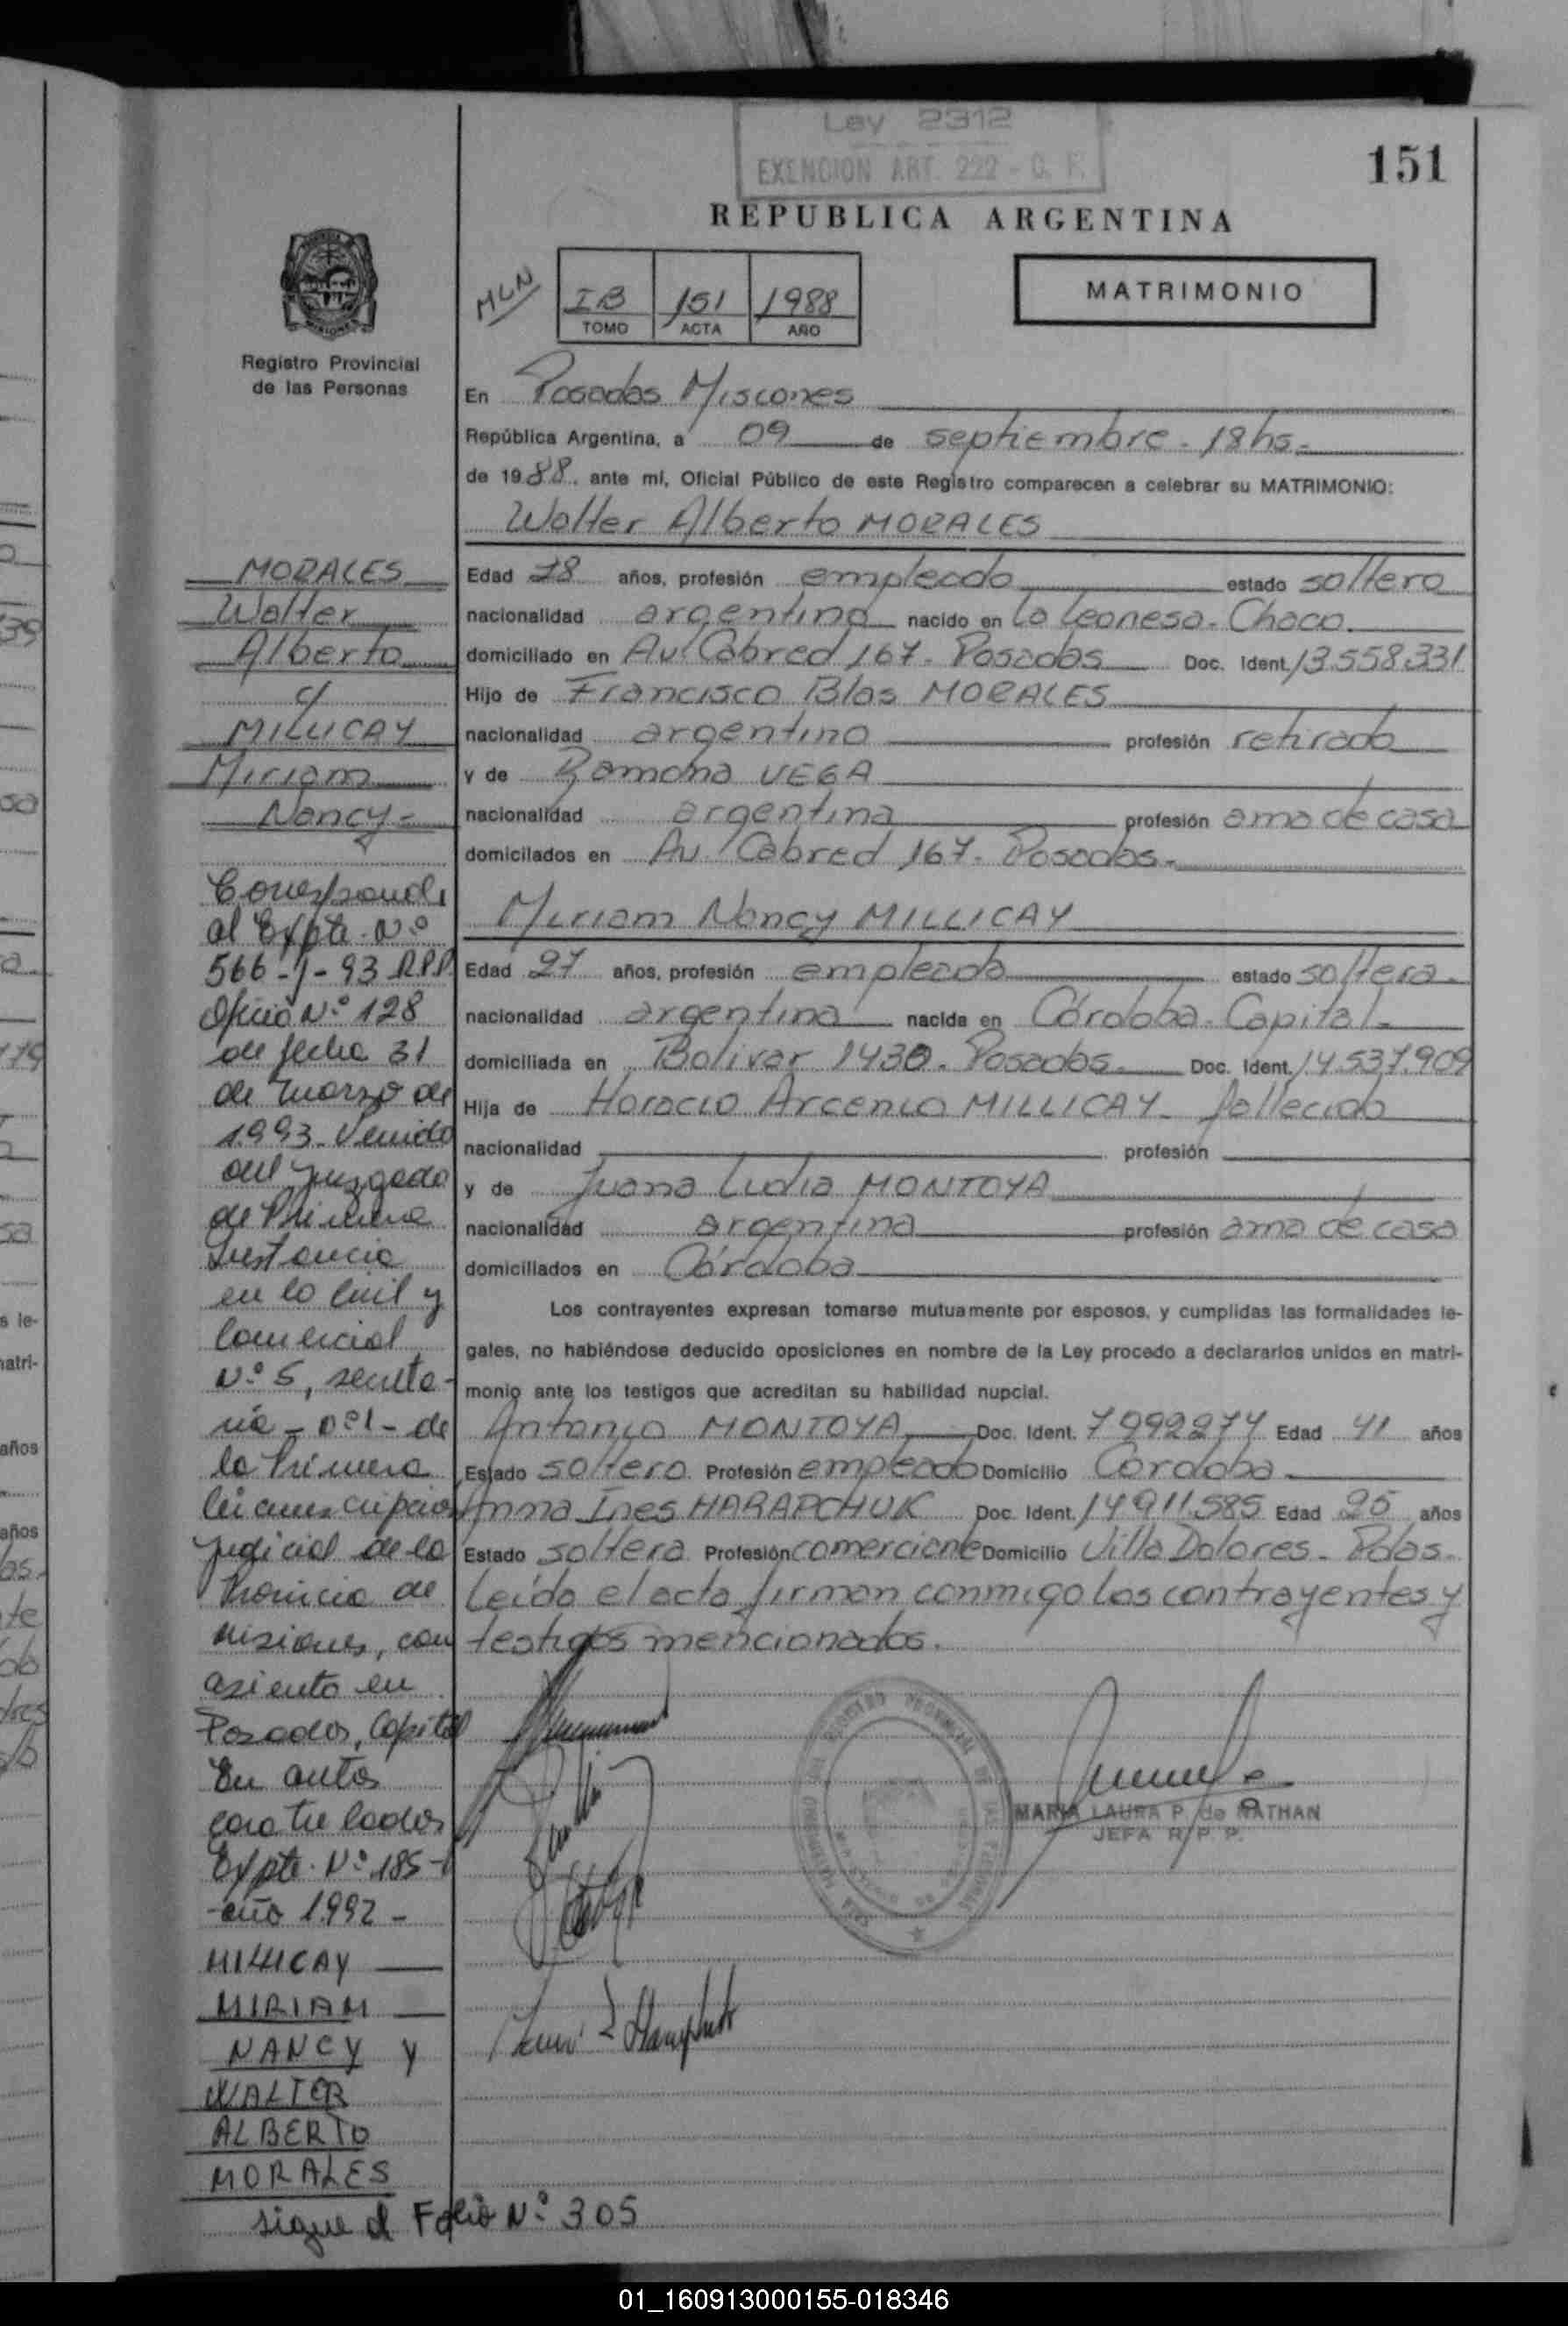 Ley 2312
EXENCION ART. 222 - C. F.
151
REPUBLICA ARGENTINA
MLN
IB 151 1988
TOMO ACTA AÑO
MATRIMONIO
Registro Provincial
de las Personas
En Posadas Misiones
República Argentina, a 09 de septiembre - 18hs.
de 1988, ante mí, Oficial Público de este Registro comparecen a celebrar su MATRIMONIO:
Walter Alberto MORALES
Edad 28 años, profesión empleado estado soltero
nacionalidad argentino nacido en La Leonesa - Chaco
domiciliado en Av. Cabred 167 - Posadas Doc. Ident. 13.558.331
Hijo de Francisco Blas MORALES
nacionalidad argentino profesión retirado
y de Ramona VEGA
nacionalidad argentina profesión ama de casa
domicilados en Av. Cabred 167 - Posadas -
Miriam Nancy MILLICAY
Edad 27 años, profesión empleada estado soltera -
nacionalidad argentina nacida en Córdoba - Capital -
domiciliada en Bolivar 1430 - Posadas - Doc. Ident. 14.537.909
Hija de Horacio Arcenio MILLICAY - fallecido
nacionalidad profesión
y de Juana Lidia MONTOYA
nacionalidad argentina profesión ama de casa
domiciliados en Córdoba
Los contrayentes expresan tomarse mutuamente por esposos, y cumplidas las formalidades le-
gales, no habiéndose deducido oposiciones en nombre de la Ley procedo a declararlos unidos en matri-
monio ante los testigos que acreditan su habilidad nupcial.
Antonio MONTOYA Doc. Ident. 7992274 Edad 41 años
Estado soltero Profesión empleado Domicilio Córdoba
Anna Ines HARAPCHUK Doc. Ident. 14911.585 Edad 25 años
Estado soltera Profesión comerciante Domicilio Villa Dolores - Pdas -
Leída el acta firman conmigo los contrayentes y
testigos mencionados.
MARIA LAURA P. de NATHAN
JEFA R. P. P.
MORALES
Walter
Alberto
c/
MILLICAY
Miriam
Nancy -
Corresponde
al Expte. Nº
566-J-93 R.P.P.
Oficio Nº 128
de fecha 31
de marzo de
1993 - Venido
del Juzgado
de Primera
Instancia
en lo Civil y
Comercial
Nº 5, secreta-
ría - nº1 - de
la Primera
Circunscripción
Judicial de la
Provincia de
Misiones, con
asiento en
Posadas, Capital
En autos
caratulados
Expte. Nº 185-
-año 1992 -
MILLICAY
MIRIAM
NANCY y
WALTER
ALBERTO
MORALES
sigue al Folio Nº 305
01_160913000155-018346